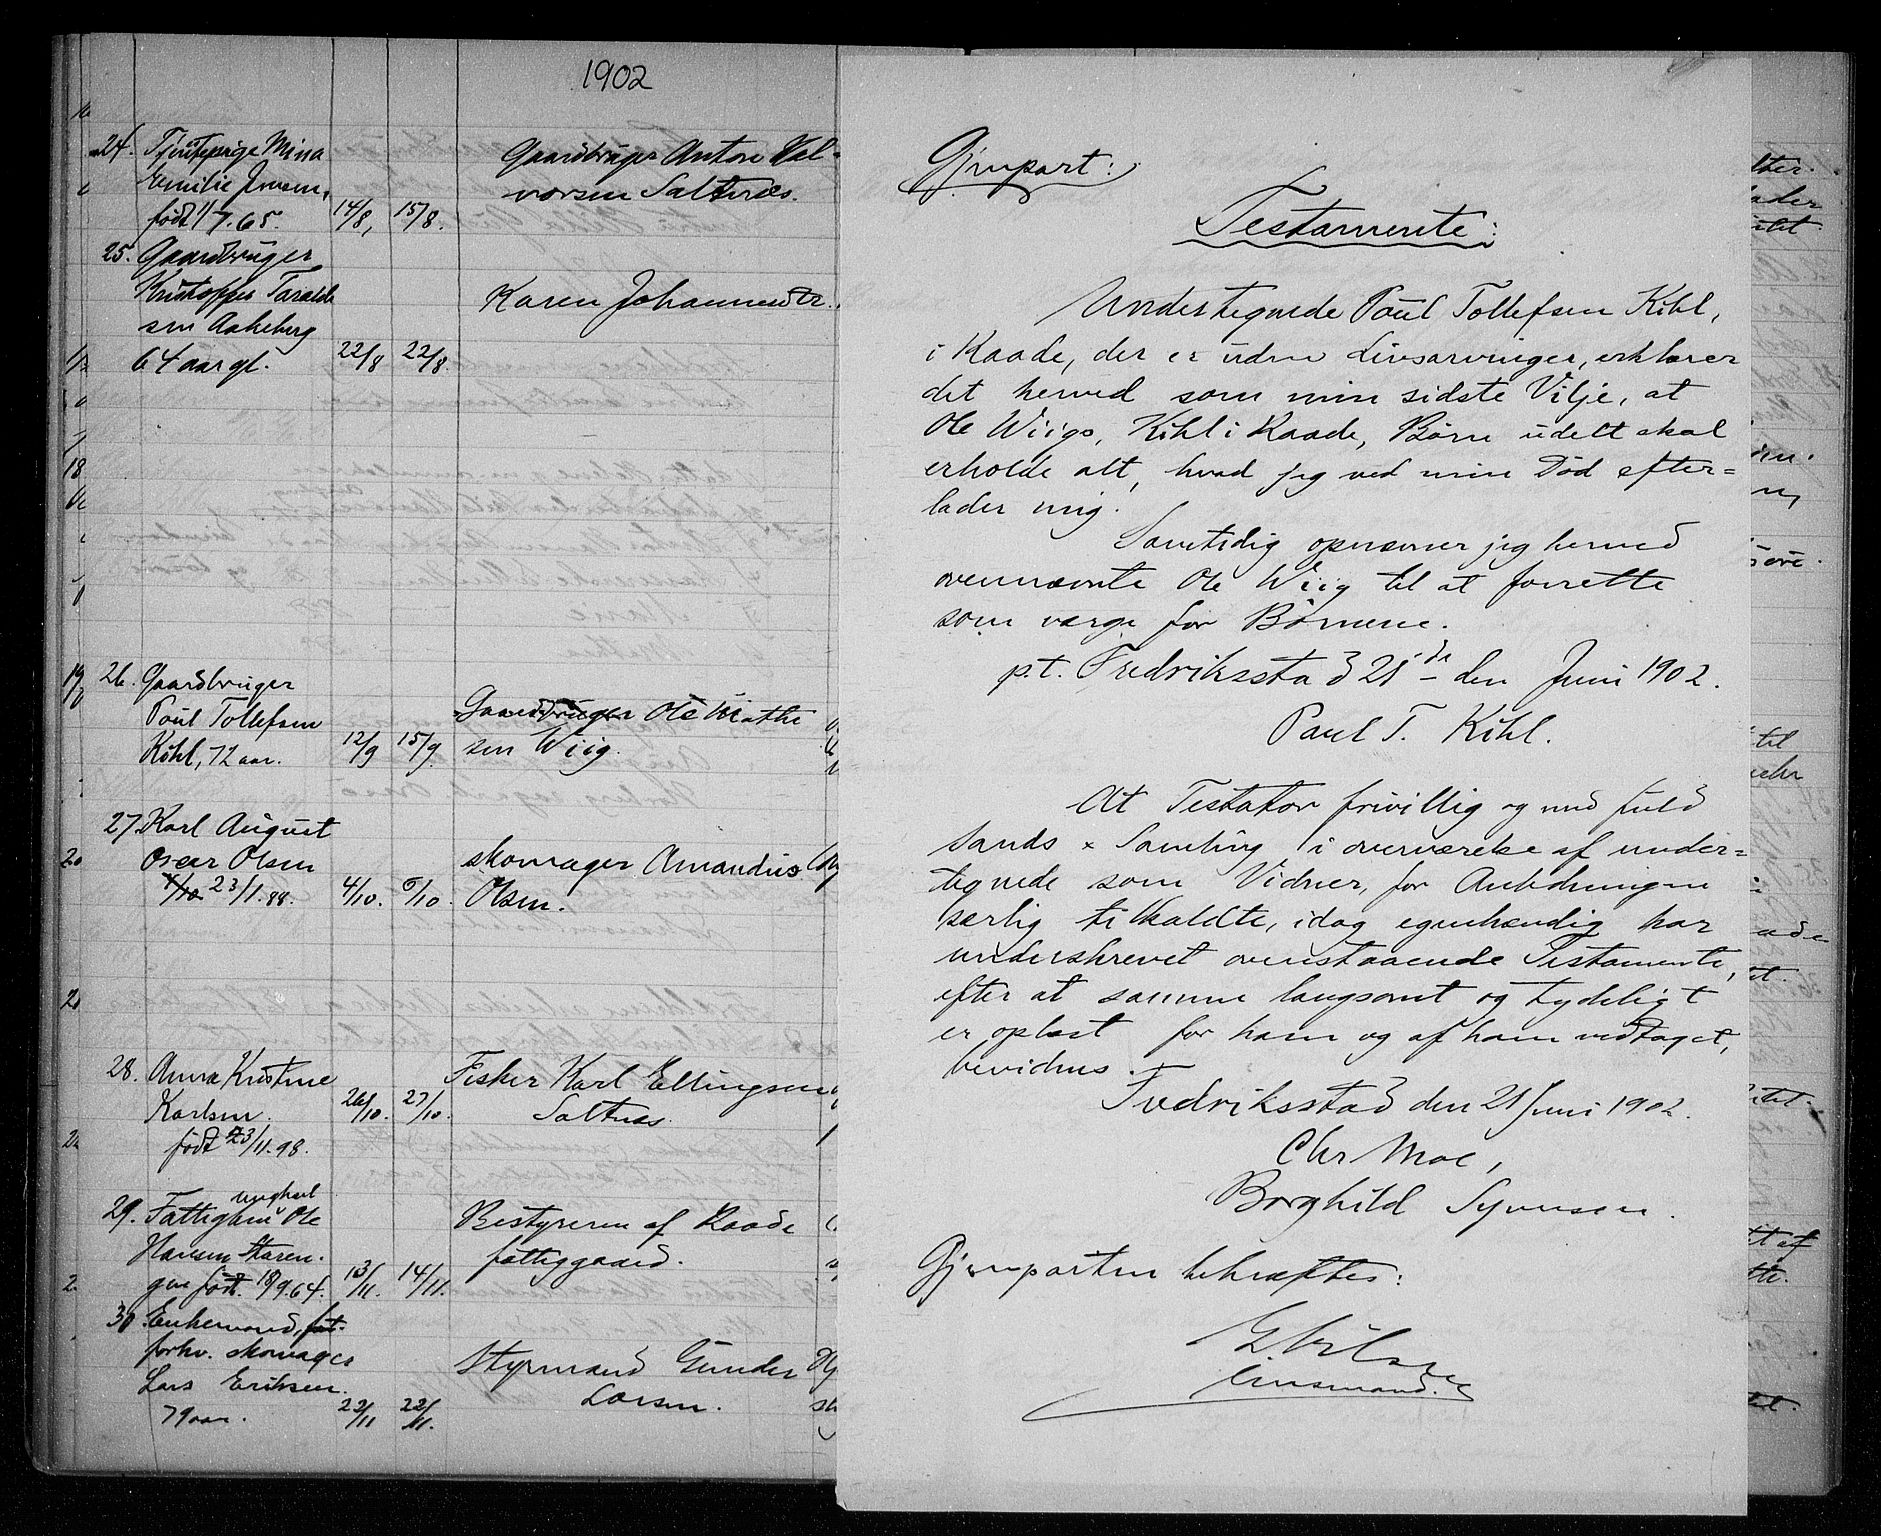 1902
24. Tjenestepige Mina
Emilie Jensen,
født 1/7.65. 14/8, 15/8.
Gaardbruger Anton Hal-
vorsen Saltnæs.
25. Gaardbruger
Kristoffer Tarald-
sen Aakeberg
64 aar gl. 22/8 22/8.
Karen Johannesdtr.
26. Gaardbruger
Poul Tollefsen
Kihl, 72 aar. 12/9 15/9.
Gaardbruger Ole Mathi
sen Wiig.
27. Karl August
Oscar Olsen
4/10 23/1.88. 4/10. 6/10.
skomager Amandus
Olsen.
28. Anna Kristine
Karlsen.
født 23/11.98. 26/10. 27/10.
Fisker Karl Ellingsen
Saltnes.
29. Fattiglem ungkarl Ole
Hansen Staren-
gen født. 18/9.64. 13/11. 14/11.
Bestyreren af Raade
fattiggaard.
30. Enkemand, fat-
forhv. skomager
Lars Eriksen.
79 aar. 22/11 22/11.
Styrmand Gunder
Larsen.
Gjenpart:
Testamente:
Undertegnede Poul Tollefsen Kihl,
i Raade, der er uden Livsarvinger, erklærer
det herved som min sidste Vilje, at
Ole Wiigs, Kihl i Raade, Børn udelt skal
erholde alt, hvad jeg ved min Død efter=
lader mig.
Samtidig opnævner jeg herved
ovennævnte Ole Wiig til at forrette
som værge for Børnene.
p.t. Fredriksstad 21de den Juni 1902.
Paul T. Kihl.
At Testator frivillig og med fuld
Sands & Samling i overværelse af under=
tegnede som Vidner, for Anledningen
særlig tilkaldte, idag egenhændig har
underskrevet ovenstaaende Testamente,
efter at samme langsomt og tydeligt
er oplæst for ham og af ham vedtaget,
bevidnes.
Fredriksstad den 21 Juni 1902.
Chr Moe,
Borghild Syvensen.
Gjenparten bekræftes:
Lensmand.